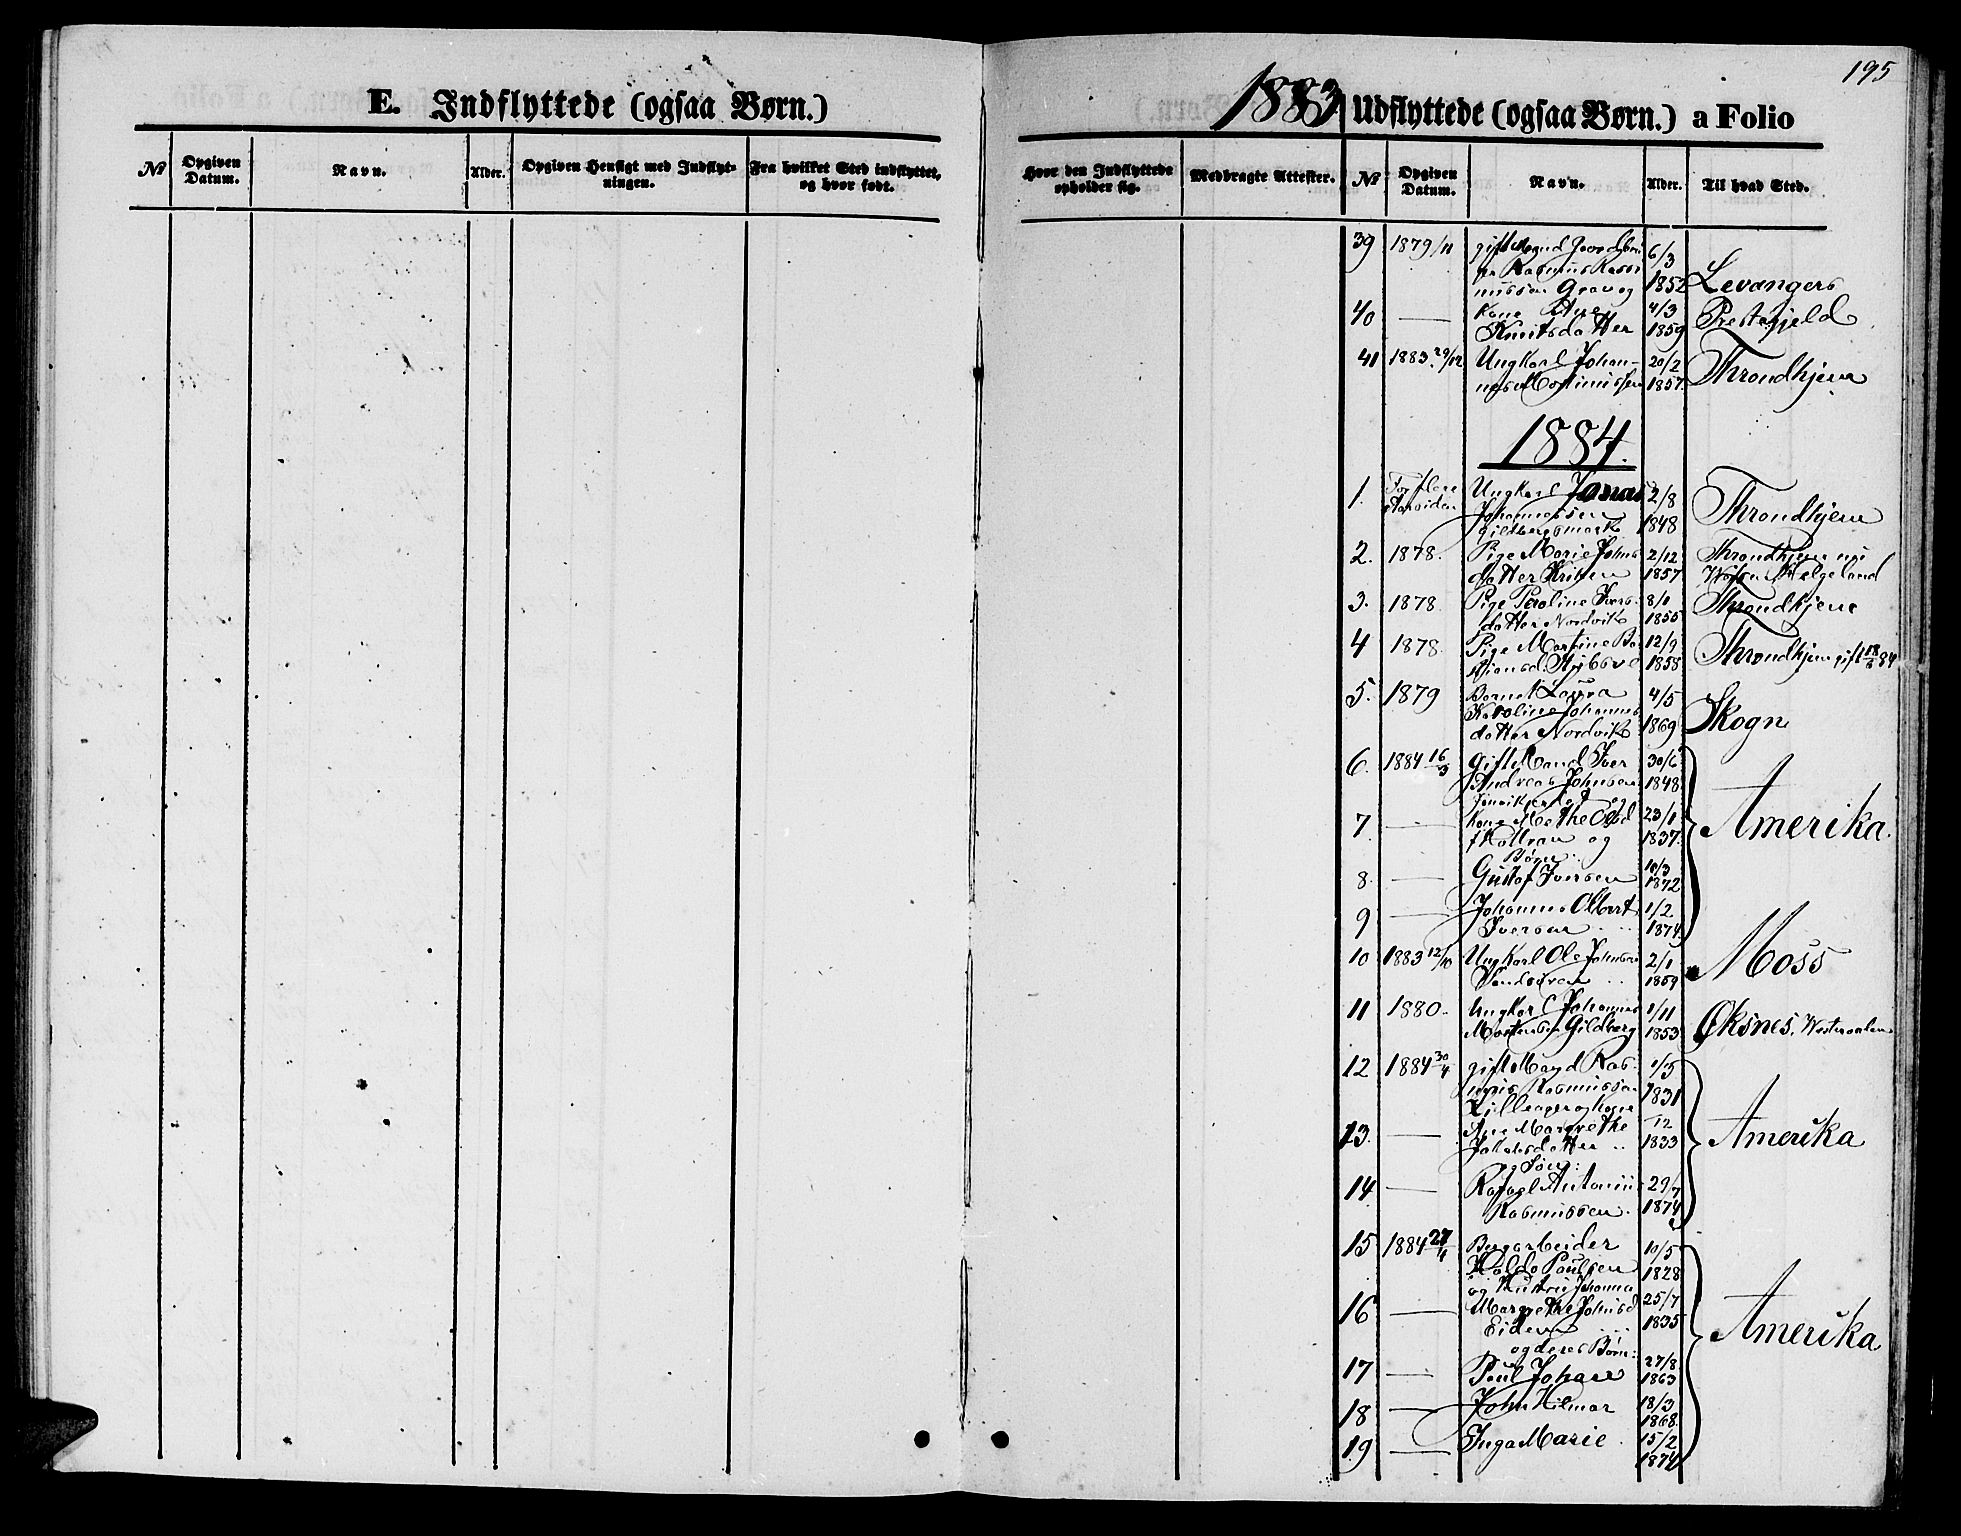 195
E. Indflyttede (ogsaa Børn.)
1883
Udflyttede (ogsaa Børn.) a Folio
№ Opgiven Datum. Navn. Alder. Opgiven Hensigt med Indflyt-
ningen. Fra hvilket Sted indflyttet,
og hvor født.
Hvor den Indflyttede
opholder sig. Medbragte Attester. № Opgiven
Datum. Navn. Alder. Til hvad Sted.
39 1879/11 gift Mand 6/3
Rasmus Ras
mussen Grav og 1852 Levangers
40 — Kone 4/3 Prestegjeld
Knutsdatter 1859
41 1883 29/12 Ungkarl Johan- 20/2 Throndhjem
nes 1857
1884.
1. Ungkarl Jonas 2/8
Johannessen Throndhjem
1848
2. 1878. Pige Marie Johns 2/12 Throndhjem
datter 1857 Helgeland
3. 1878. Pige Ivers 8/1 Throndhjem
datter Nordvik 1855
4 1878. Pige Martine 12/9 Throndhjem gift
1858
5. 1879 Barnet Laura 4/5
Karoline Johannes
datter Nordvik 1869 Skogn
6. 1884 16/3 Gift Mand Iver 30/6
Andreas Johnsen 1848
og
7 — Kone Olsd 23/1 Amerika.
og 1837.
Børn
8. — Gustaf Iversen 10/3
1872
9 — Johannes Albert 1/2
Iversen 1874.
10 1883 12/10 Ungkarl Ole Johnsen 2/1 Moss
1859
11 1880. Ungkarl Johannes 1/11 Øksnes, Westeraalen
Mortensen Gildberg 1853
12 1884 30/4 gift Mand Ras- 1/5
mus Rasmussen 1831
Lilleager og Kone
13. — Ane Margrethe 12 Amerika
datter 1833
og Søn:
14 — Rafael Antonius 29/7
Rasmussen. 1874
15 1884 27/4 Bergarbeider 10/5
Haldo Paulsen 1828
og Hustru Johanna
16 — Margrethe Johnsd 25/7
Eidem 1835 Amerika
og deres Børn:
17 — Paul Johan 27/8
1863
18 — John Hilmar 18/3
1868.
19 — Inga Marie 15/2
1874